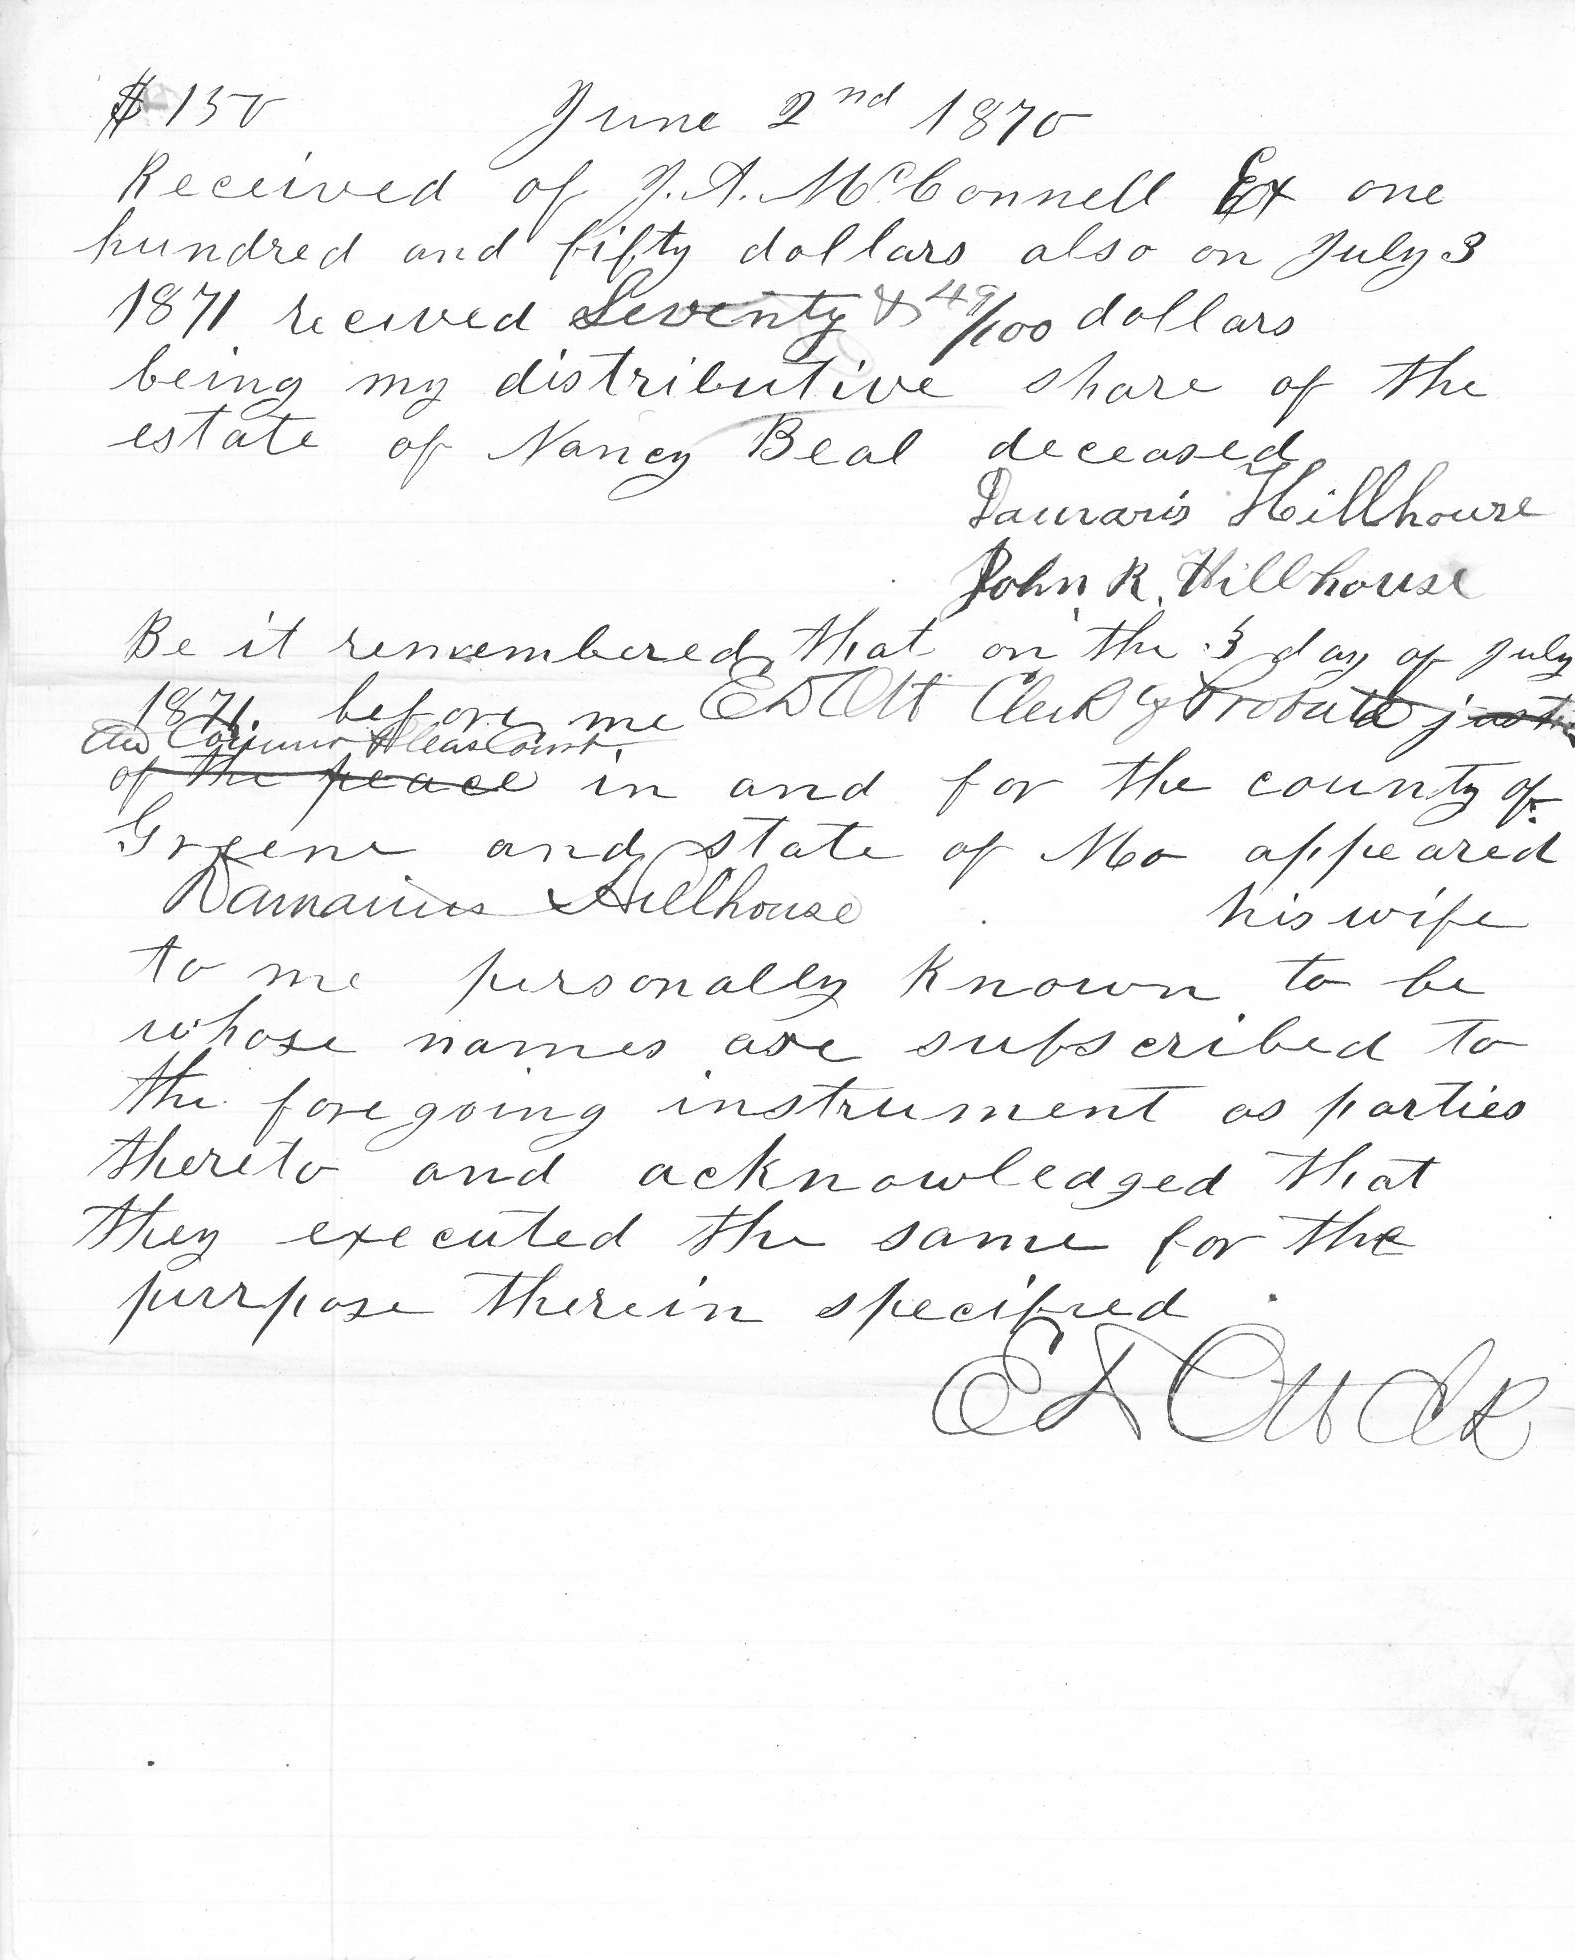 $150 June 2nd 1870
Received of J. A. McConnell Ex one
hundred and fifty dollars also on July 3
1871 recived Seventy & 49/100 dollars
being my distributive share of the
estate of Nancy Beal deceased
Damaris Hillhouse
John R. Hillhouse
Be it remembered that on the 3 day of July
1871. before me E D Ott Clerk of Probate a justice
and Common Pleas Court
of the peace in and for the county of
Greene and state of Mo appeared
Damarius Hillhouse his wife
to me personally known to be
whose names are subscribed to
the foregoing instrument as parties
thereto and acknowledged that
they executed the same for the
purpose therein specified
E D Ott Clk